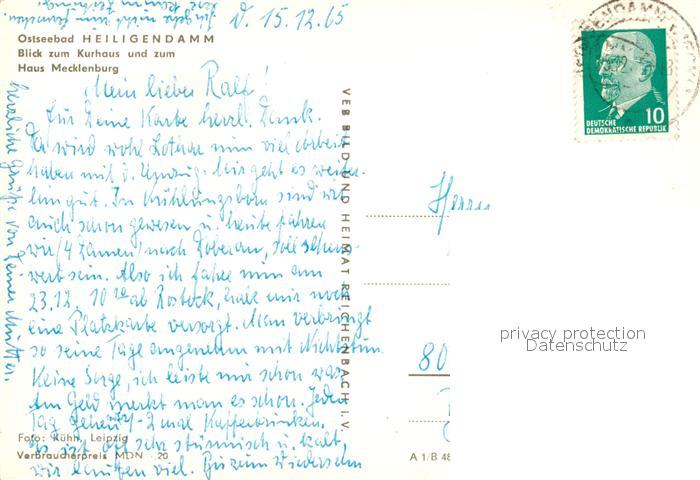 d. 15.12.65
Ostseebad HEILIGENDAMM
Blick zum Kurhaus und zum
Haus Mecklenburg
Mein lieber Ralf!
Für Deine Karte herzl. Dank.
Da wird wohl Lothar nun viel Arbeit
haben mit d. Umzug. Mir geht es weiter-
hin gut. In Kühlungsborn sind wir
auch schon gewesen u. heute fahren
wir (4 Damen) nach Doberan, soll sehens-
wert sein. Also ich fahre nun am
23.12. 10 ab Rostock, habe mir noch
eine Platzkarte versorgt. Man verbringt
so seine Tage angenehm mit Nichtstun.
Keine Sorge, ich leiste mir schon was
Am Geld merkt man es schon. Jeden
Tag gehen 1-2 mal Kaffeetrinken.
Es ist oft sehr stürmisch u. kalt,
wir laufen viel. Bis zum Wiedersehn
herzliche Grüße von Deiner Mutter.
Foto: Kühn, Leipzig
Verbraucherpreis MDN 20
VEB BILD UND HEIMAT REICHENBACH I. V.
A 1/B 48
Herrn
80
10
DEUTSCHE
DEMOKRATISCHE REPUBLIK
privacy protection
Datenschutz